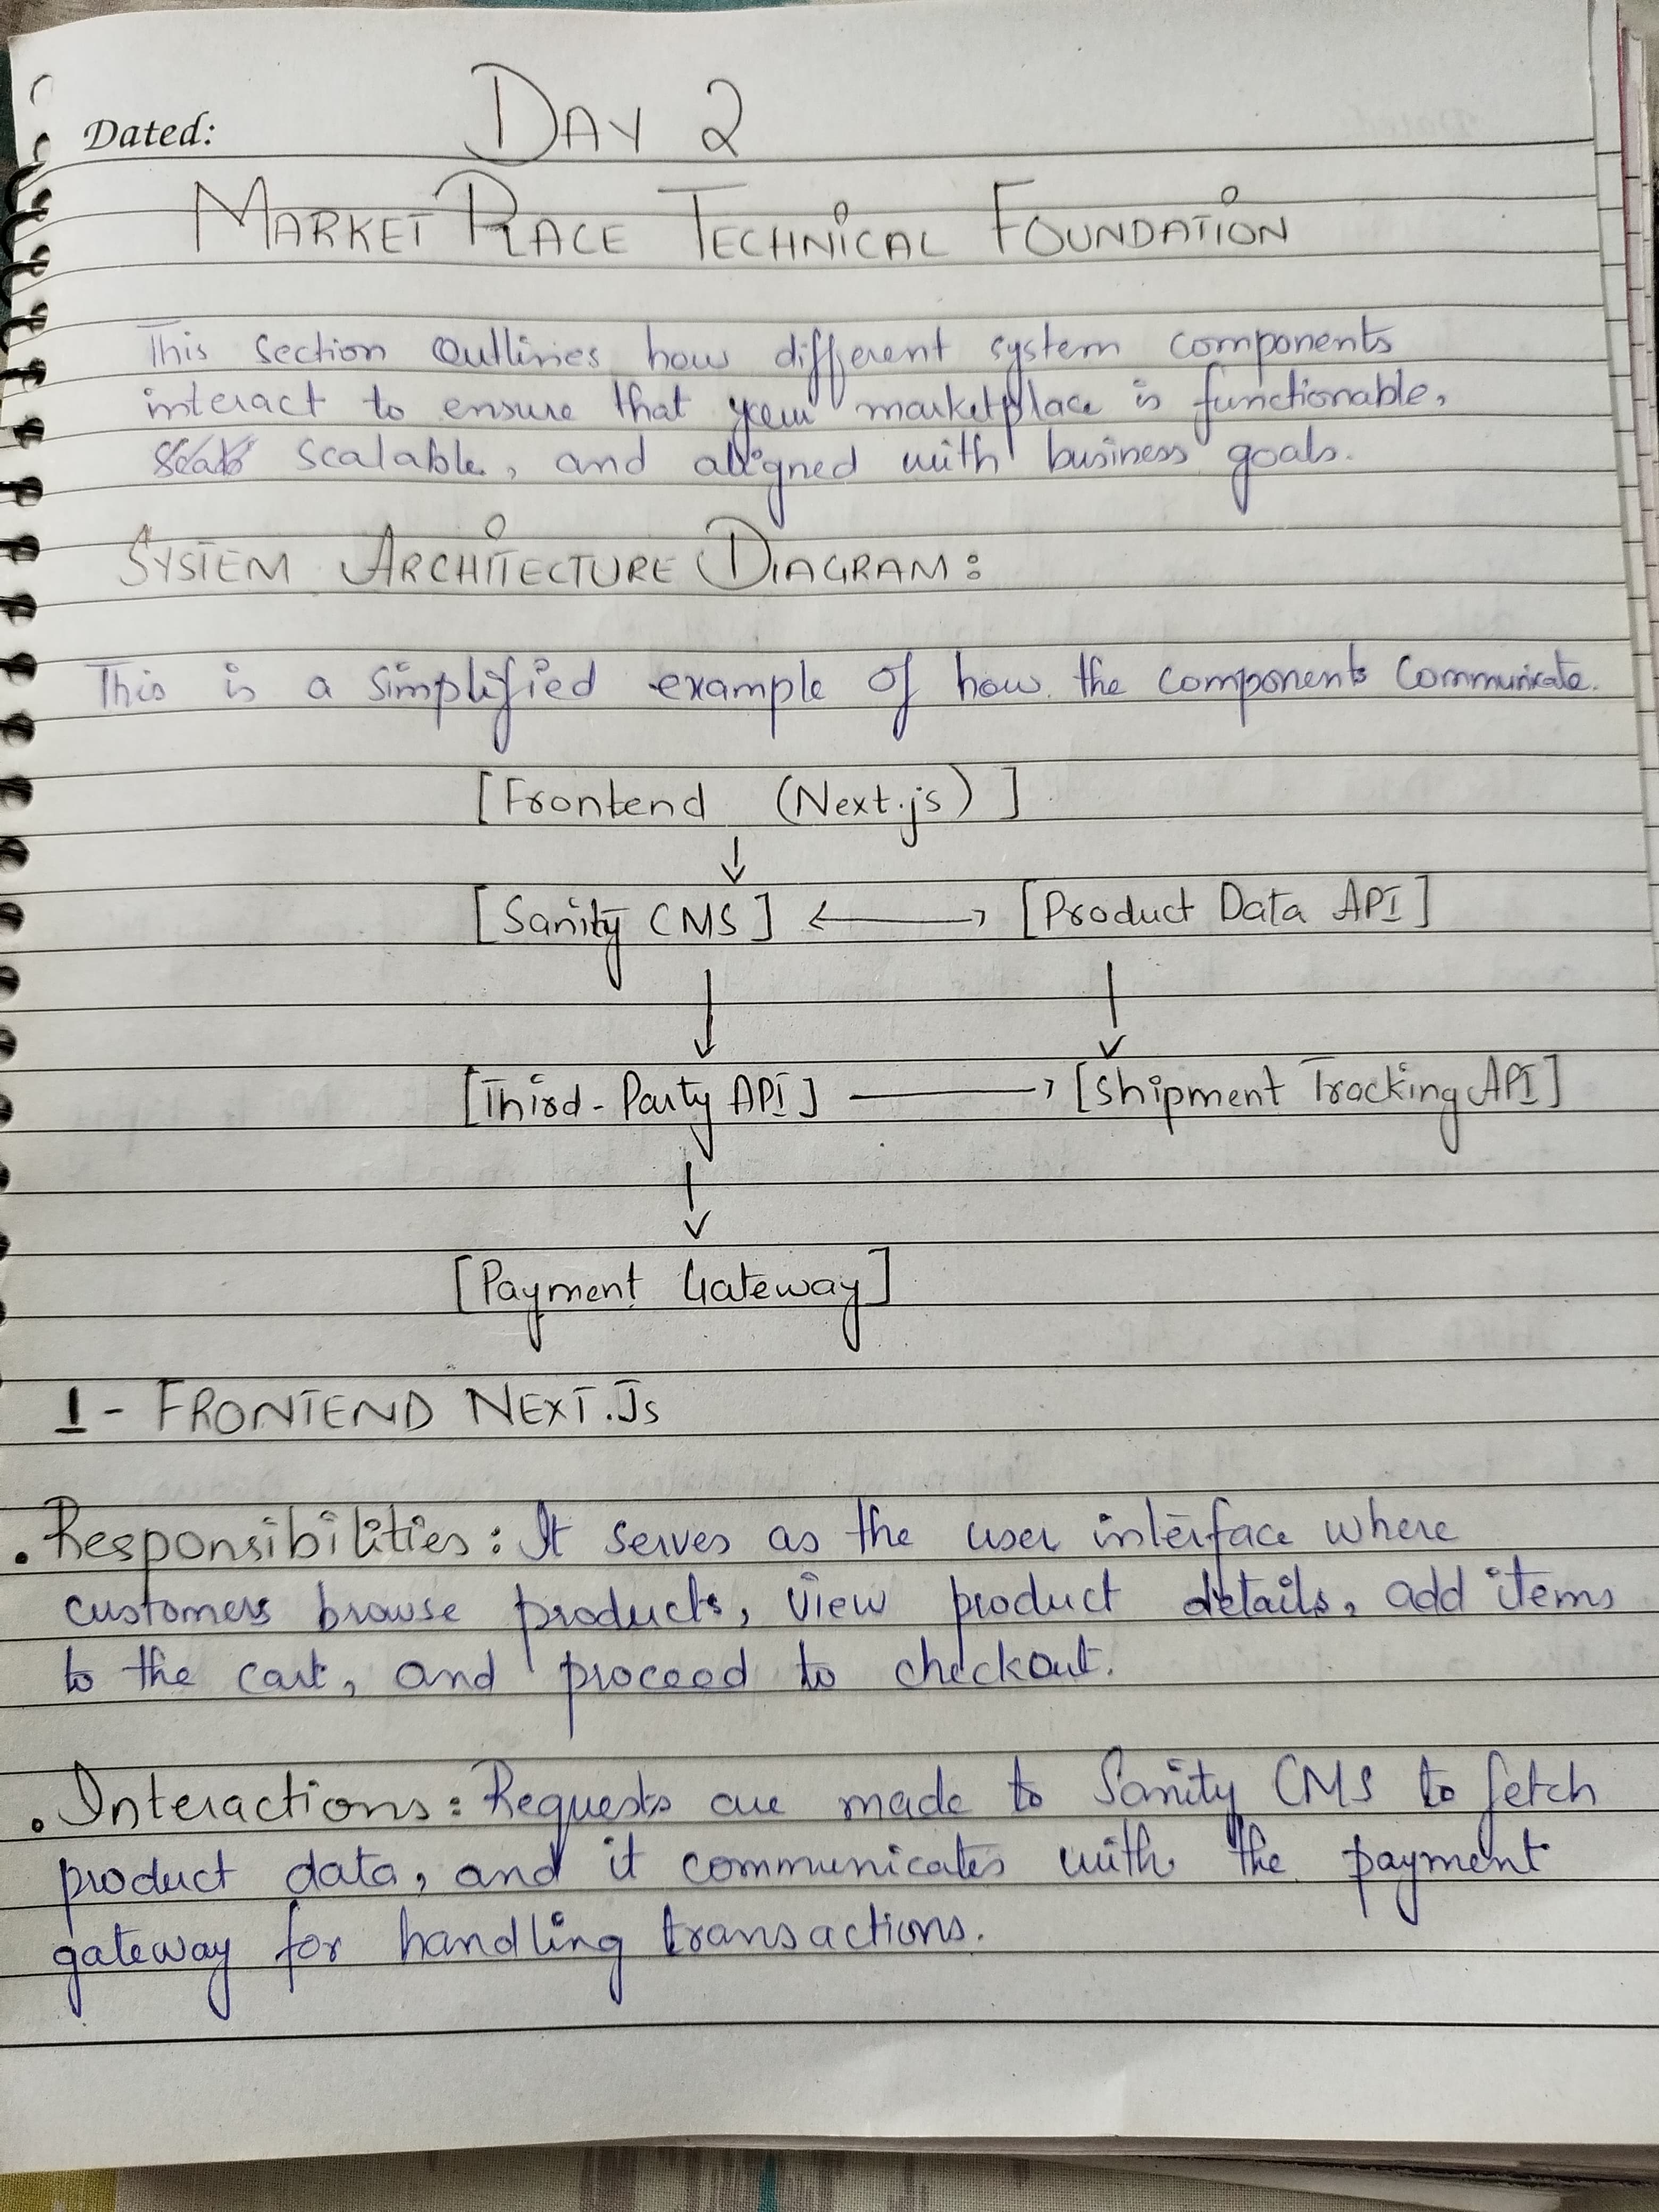 Dated:
DAY 2
MARKET PLACE TECHNICAL FOUNDATION
This section outlines how different system components
interact to ensure that your marketplace is functionable,
scalable, and aligned with business goals.
SYSTEM ARCHITECTURE DIAGRAM:
This is a simplified example of how the components communicate.
[Frontend (Next.js)]
↓
[Sanity CMS] ←→ [Product Data API]
↓ ↓
[Third-Party API] → [Shipment Tracking API]
↓
[Payment Gateway]
1- FRONTEND NEXT.Js
• Responsibilities: It serves as the user interface where
customers browse products, view product details, add items
to the cart, and proceed to checkout.
• Interactions: Requests are made to Sanity CMS to fetch
product data, and it communicates with the payment
gateway for handling transactions.